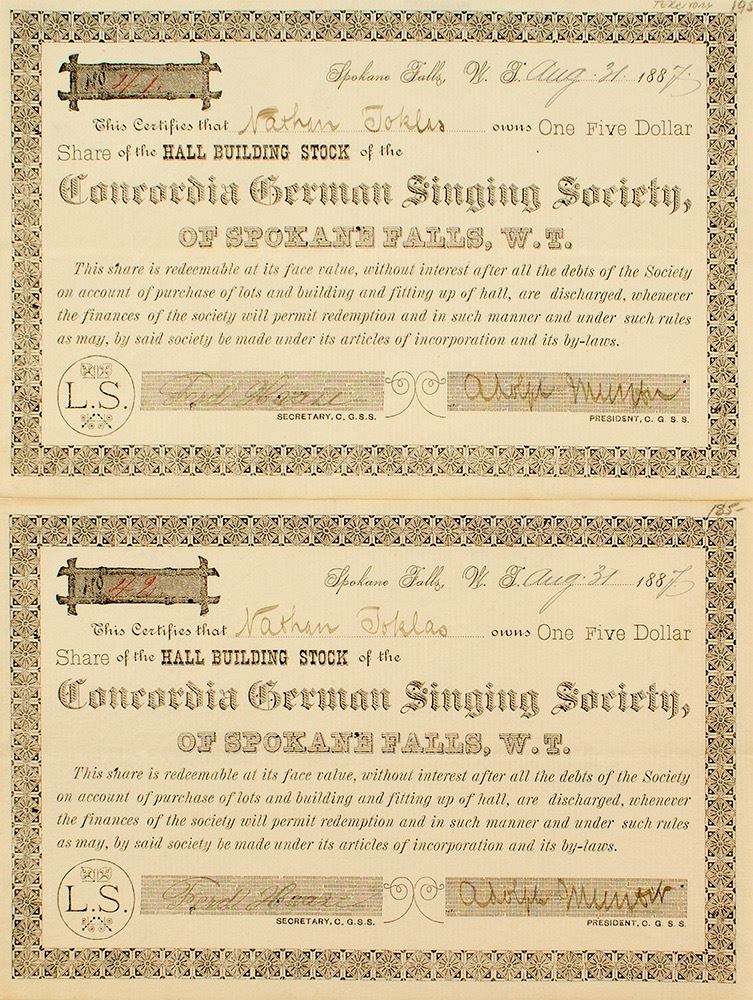 195
No 41.
Spokane Falls, W. T. Aug. 31. 1887.
This Certifies that Nathan Toklas owns One Five Dollar
Share of the HALL BUILDING STOCK of the
Concordia German Singing Society,
OF SPOKANE FALLS, W. T.
This share is redeemable at its face value, without interest after all the debts of the Society
on account of purchase of lots and building and fitting up of hall, are discharged, whenever
the finances of the society will permit redemption and in such manner and under such rules
as may, by said society be made under its articles of incorporation and its by-laws.
L.S.
Ferd
Adolph
SECRETARY, C. G. S. S.
PRESIDENT, C. G. S. S.
185-
No 42.
Spokane Falls, W. T. Aug. 31 1887
This Certifies that Nathan Toklas owns One Five Dollar
Share of the HALL BUILDING STOCK of the
Concordia German Singing Society,
OF SPOKANE FALLS, W. T.
This share is redeemable at its face value, without interest after all the debts of the Society
on account of purchase of lots and building and fitting up of hall, are discharged, whenever
the finances of the society will permit redemption and in such manner and under such rules
as may, by said society be made under its articles of incorporation and its by-laws.
L.S.
Ferd
Adolph
SECRETARY, C. G. S. S.
PRESIDENT, C. G. S. S.